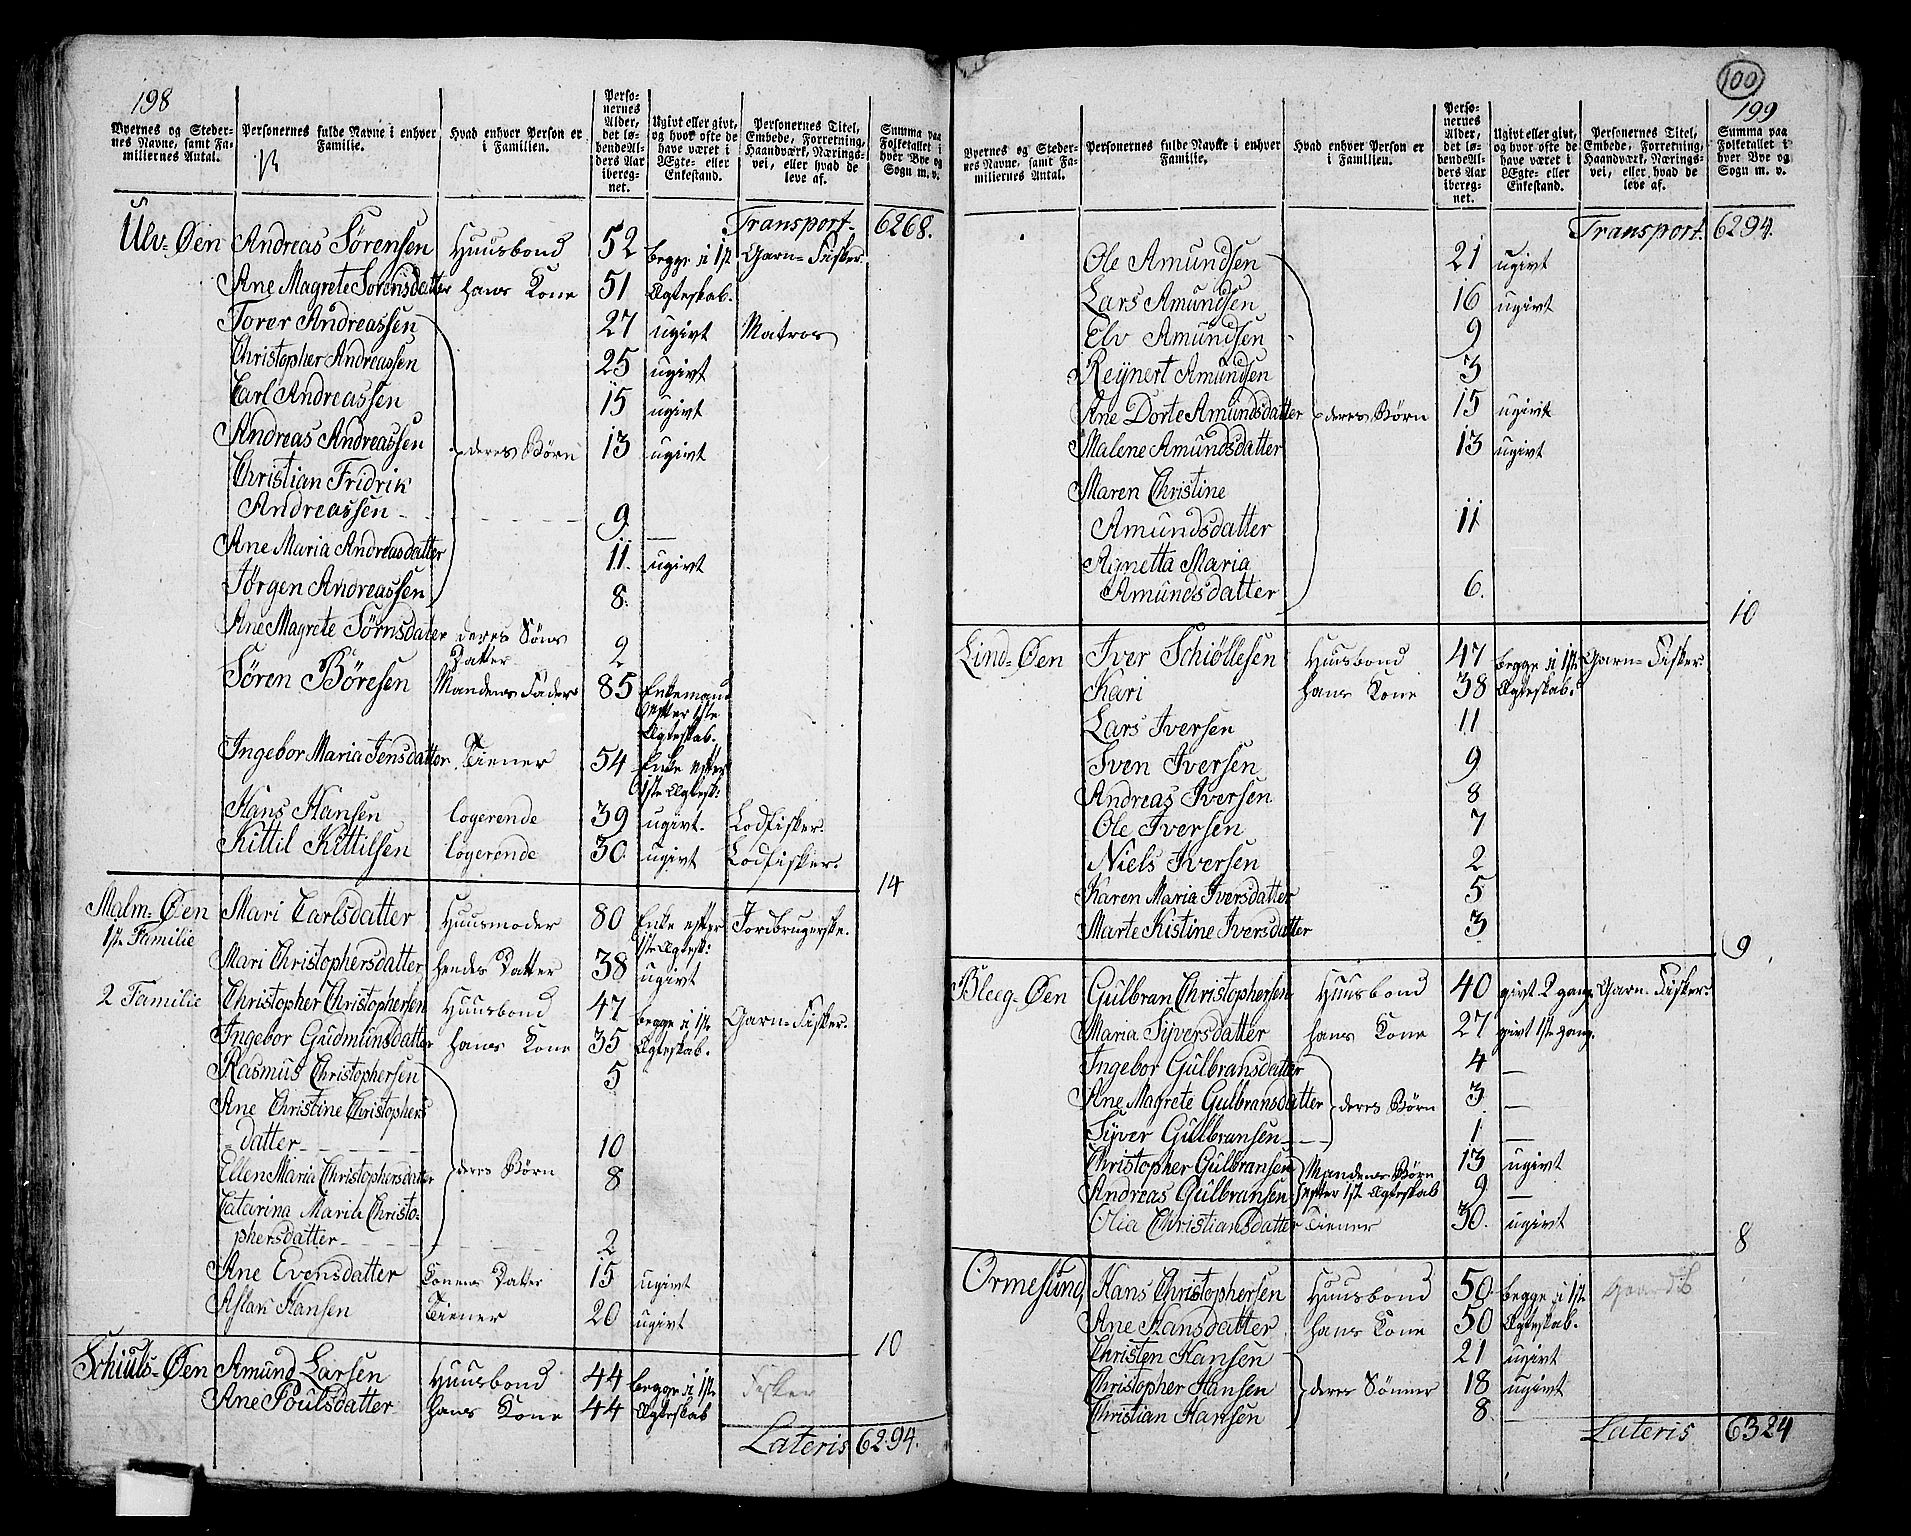 198
Byernes og Stedernes Navne, samt Familiernes Antal. | Personernes fulde Navne i enhver Familie. | Hvad enhver Person er i Familien. | Personernes Alder, det løbende Alders Aar iberegnet. | Ugivt eller givt, og hvor ofte de have været i Ægte- eller Enkestand. | Personernes Titel, Embede, Forretning, Haandværk, Næringsvei, eller hvad de leve af. | Summa paa Folketallet i hver Bye og Sogn m. v.
Transport. 6268.
Ulv-Øen Andreas Sørensen Huusbond 52 begge i 1ste Garn-Fisker.
Ane Magrete Sørensdatter hans Kone 51 Ægteskab.
Torer Andreassen 27 ugivt Matros
Christopher Andreassen 25 ugivt
Carl Andreassen 15 ugivt
Andreas Andreassen deres Børn 13 ugivt
Christian Fridrik
Andreassen 9 —
Ane Maria Andreasdatter 11. ugivt
Jørgen Andreassen 8.
Ane Magrete Sørnsdater deres Søns
Datter 2
Søren Böresen Mandens Fader 85 Enkemand
efter 1ste
Ægteskab.
Ingebor Maria Jensdatter Tiener 54 Enke efter
1ste Ægtesk:
Hans Hansen logerende 39 ugivt. Lodfisker.
Kittil Kittilsen logerende 30 ugivt Lodfisker.
14
Malm-Øen Mari Carlsdatter Huusmoder 80 Enke efter Jordbrugerske.
1ste Familie 1ste Ægtesk:
Mari Christophersdatter hendes Datter 38 ugivt
2 Familie Christopher Christophersen Huusbond 47 begge i 1ste Garn-Fisker.
Ingebor Gudmundsdatter hans Kone 35 Ægteskab.
Rasmus Christophersen 5
Ane Christine Christophers
datter 10
Ellen Maria Christophersdatter deres Børn 8
Catarina Maria Christo-
phersdatter 2
Ane Evensdatter Konens Datter 15 ugivt
Aslak Hansen Tiener 20 ugivt
10
Schiuls-Øen Amund Larsen Huusbond 44 begge i 1ste Fisker
Ane Poulsdatter hans Kone 44 Ægteskab
Lateris 6294.
100
199
Byernes og Stedernes Navne, samt Familiernes Antal. | Personernes fulde Navne i enhver Familie. | Hvad enhver Person er i Familien. | Personernes Alder, det løbende Alders Aar iberegnet. | Ugivt eller givt, og hvor ofte de have været i Ægte- eller Enkestand. | Personernes Titel, Embede, Forretning, Haandværk, Næringsvei, eller hvad de leve af. | Summa paa Folketallet i hver Bye og Sogn m. v.
Transport. 6294.
Ole Amundsen 21 ugivt
Lars Amundsen 16 ugivt
Elv Amundsen 9
Reijnert Amundsen 3
Ane Dorte Amundsdatter deres Børn 15 ugivt
Malene Amundsdatter 13 ugivt
Maren Christine
Amundsdatter 11
Agnetta Maria
Amundsdatter 6.
10
Lind-Øen Iver Schiöllesen Huusbond 47 begge i 1ste Garn-Fisker.
Kari hans Kone 38 Ægteskab.
Lars Iversen 11
Sven Iversen 9
Andreas Iversen 8
Ole Iversen 7
Niels Iversen 2
Karen Maria Iversdatter 5
Marte Kistine Iversdatter 3
9
Bleeg-Øen Gulbran Christophersen Huusbond 40 givt 2 gang. Garn-Fisker.
Maria Sijversdatter hans Kone 27 givt 1ste gang.
Ingebor Gulbransdatter 4 —
Ane Magrete Gulbransdatter deres Børn 3 —
Sijver Gulbransen 1 —
Christopher Gulbransen Mandens Børn 13 ugivt
Andreas Gulbransen efter 1ste Ægteskab 9 —
Olia Christiansdatter Tiener 30. ugivt
8
Ormesund Hans Christophersen Huusbond 50 begge i 1ste
Ane Hansdatter hans Kone 50 Ægteskab.
Christen Hansen 21 ugivt
Christopher Hansen deres Sønner 18 ugivt
Christian Hansen 8
Lateris 6324